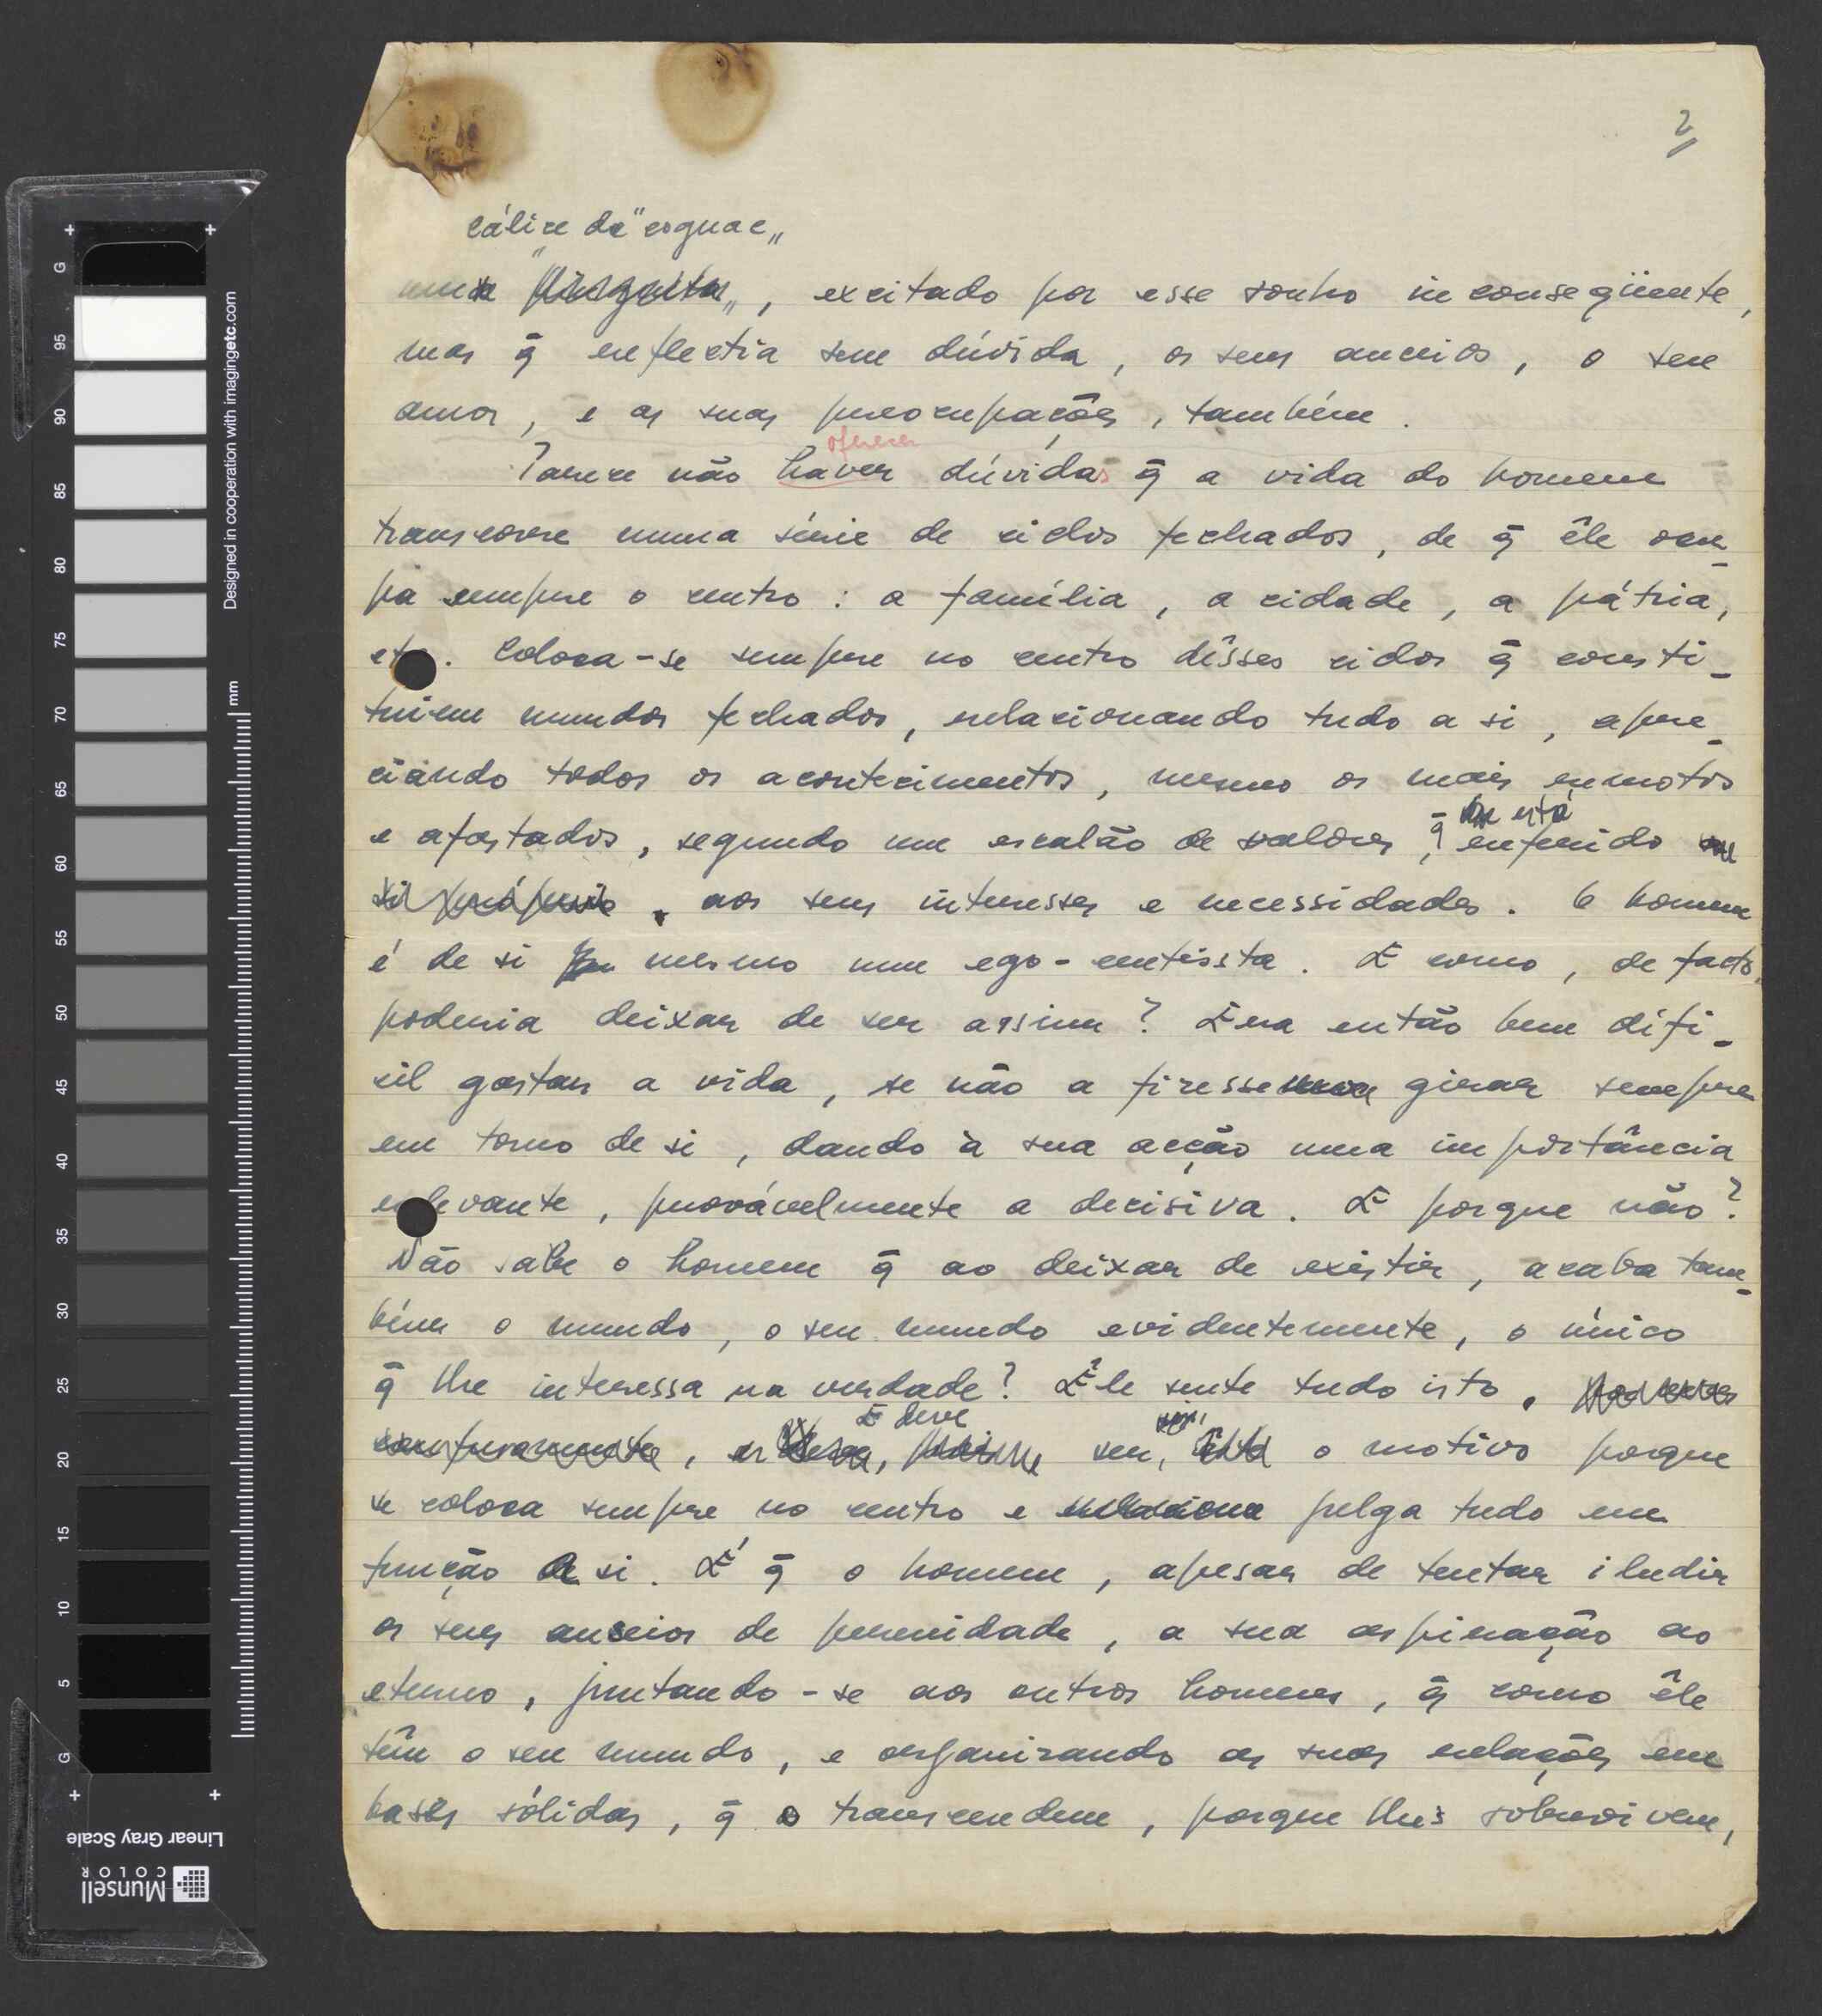 2
cálice de "cognac"
num , excitado por esse sonho inconseqüente,
mas q̄ reflectia sem dúvida, os seus anceios, o seu
amor, e as suas preocupações, também.
oferecer
Parece não haver dúvidas q̄ a vida do homem
transcorre numa série de ciclos fechados, de q̄ êle ocu-
pa sempre o centro : a família, a cidade, a pátria,
etc. Coloca-se sempre no centro dêsses ciclos q̄ consti-
tuiem mundos fechados, relacionando tudo a si, apre-
ciando todos os acontecimentos, mesmo os mais remotos
está
e afastados, segundo um escalão de valores, q̄ referido
si próprio, aos seus interesses e necessidades. O homem
é de si mesmo um ego-centrista. E como, de facto,
poderia deixar de ser assim? Era então bem difí-
cil gastar a vida, se não a fizesse girar sempre
em torno de si, dando à sua acção uma importância
relevante, provàvelmente a decisiva. E porque não?
Não sabe o homem q̄ ao deixar de existir, acaba tam-
bém o mundo, o seu mundo evidentemente, o único
q̄ lhe interessa na verdade? Êle sente tudo isto.
E deve
ser, o motivo porque
se coloca sempre no centro e relaciona julga tudo em
função de si. É q̄ o homem, apesar de tentar iludir
os seus anseios de perenidade, a sua aspiração ao
eterno, juntando-se aos outros homens, q̄ como êle
têm o seu mundo, e organizando as suas relações em
bases sólidas, q̄ o transcendem, porque lhes sobrevivem,
Designed in cooperation with imagingetc.com
mm
G
95
90
85
80
75
70
65
60
55
50
45
40
35
30
25
20
15
10
5
G
Linear Gray Scale
Munsell
COLOR